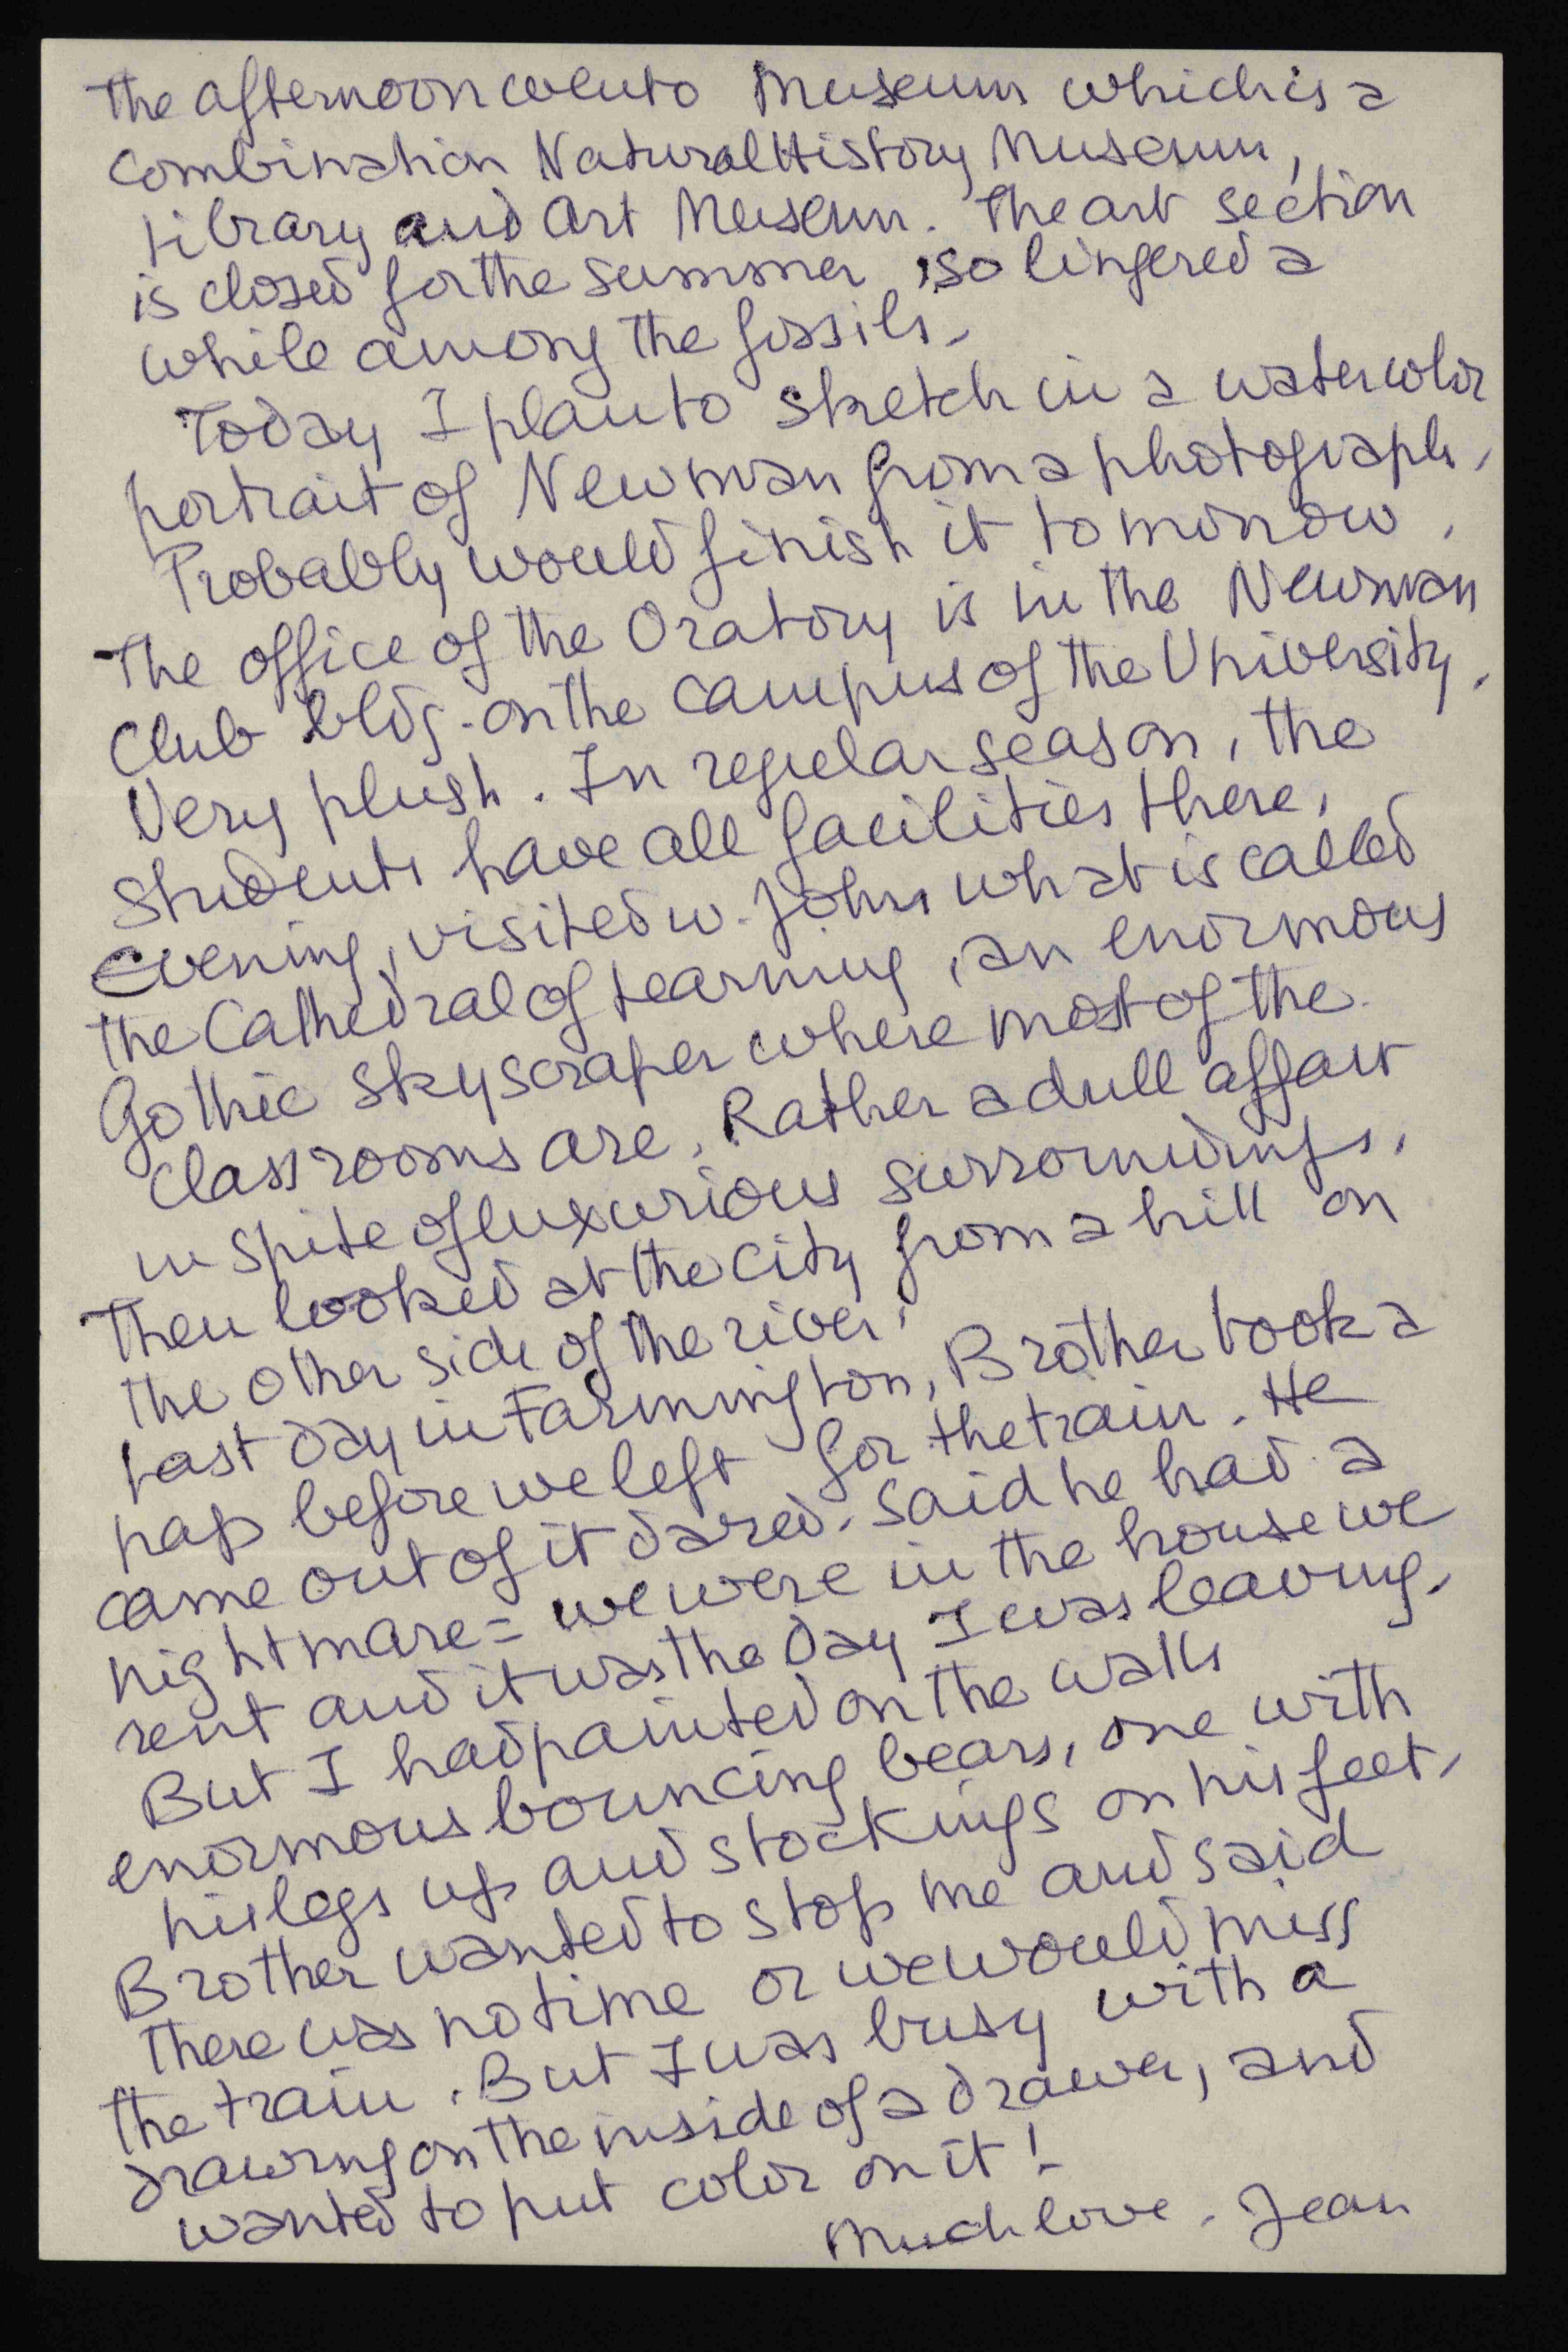 The afternoon went to Museum which is a
combination Natural History Museum,
Library and Art Museum. The art section
is closed for the summer, so lingered a
while among the fossils.
Today I plan to sketch in a watercolor
portrait of Newman from a photograph,
Probably would finish it tomorrow.
The office of the Oratory is in the Newman
Club bldg. on the campus of the University.
Very plush. In regular season, the
students have all facilities there.
Evening, visited w. John what is called
the Cathedral of Learning, an enormous
Gothic skyscraper where most of the
classrooms are. Rather a dull affair
in spite of luxurious surroundings.
Then looked at the city from a hill on
the other side of the river.
Last day in Farmington, Brother took a
nap before we left for the train. He
came out of it dazed. Said he had a
nightmare = we were in the house we
rent and it was the day I was leaving.
But I had painted on the walls
enormous bouncing bears, one with
his legs up and stockings on his feet.
Brother wanted to stop me and said
there was no time or we would miss
the train. But I was busy with a
drawing on the inside of a drawer, and
wanted to put color on it!
Much love. Jean